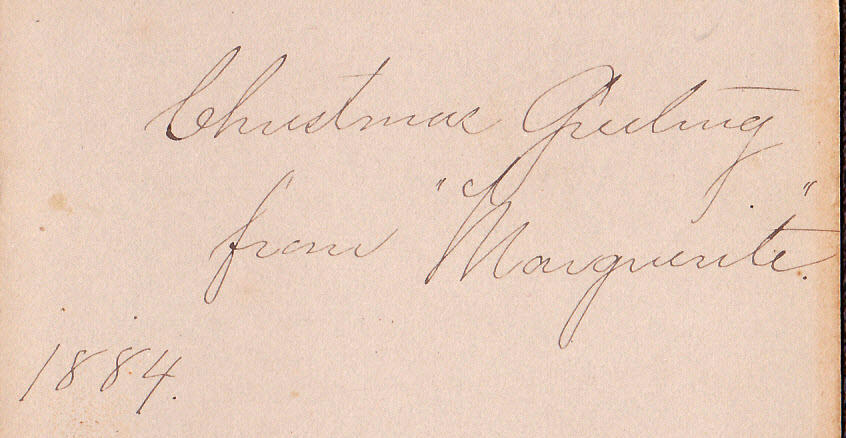 Christmas Greeting
from "Marguerite".
1884.